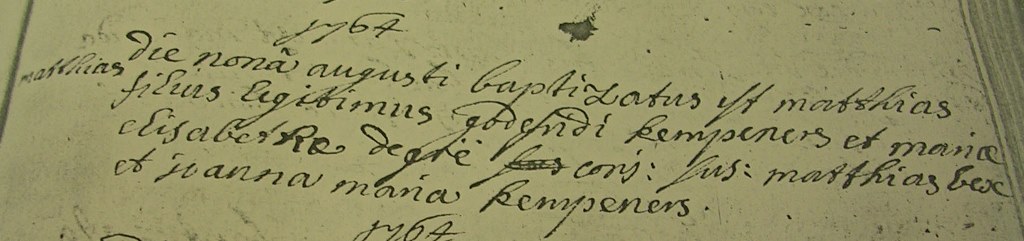 1764
matthias
Die nonâ augusti baptizatus est matthias
filius legitimus godefridi kempeners et mariæ
elisabethæ degrë conj: sus: matthias bex
et joanna maria kempeners.
1764